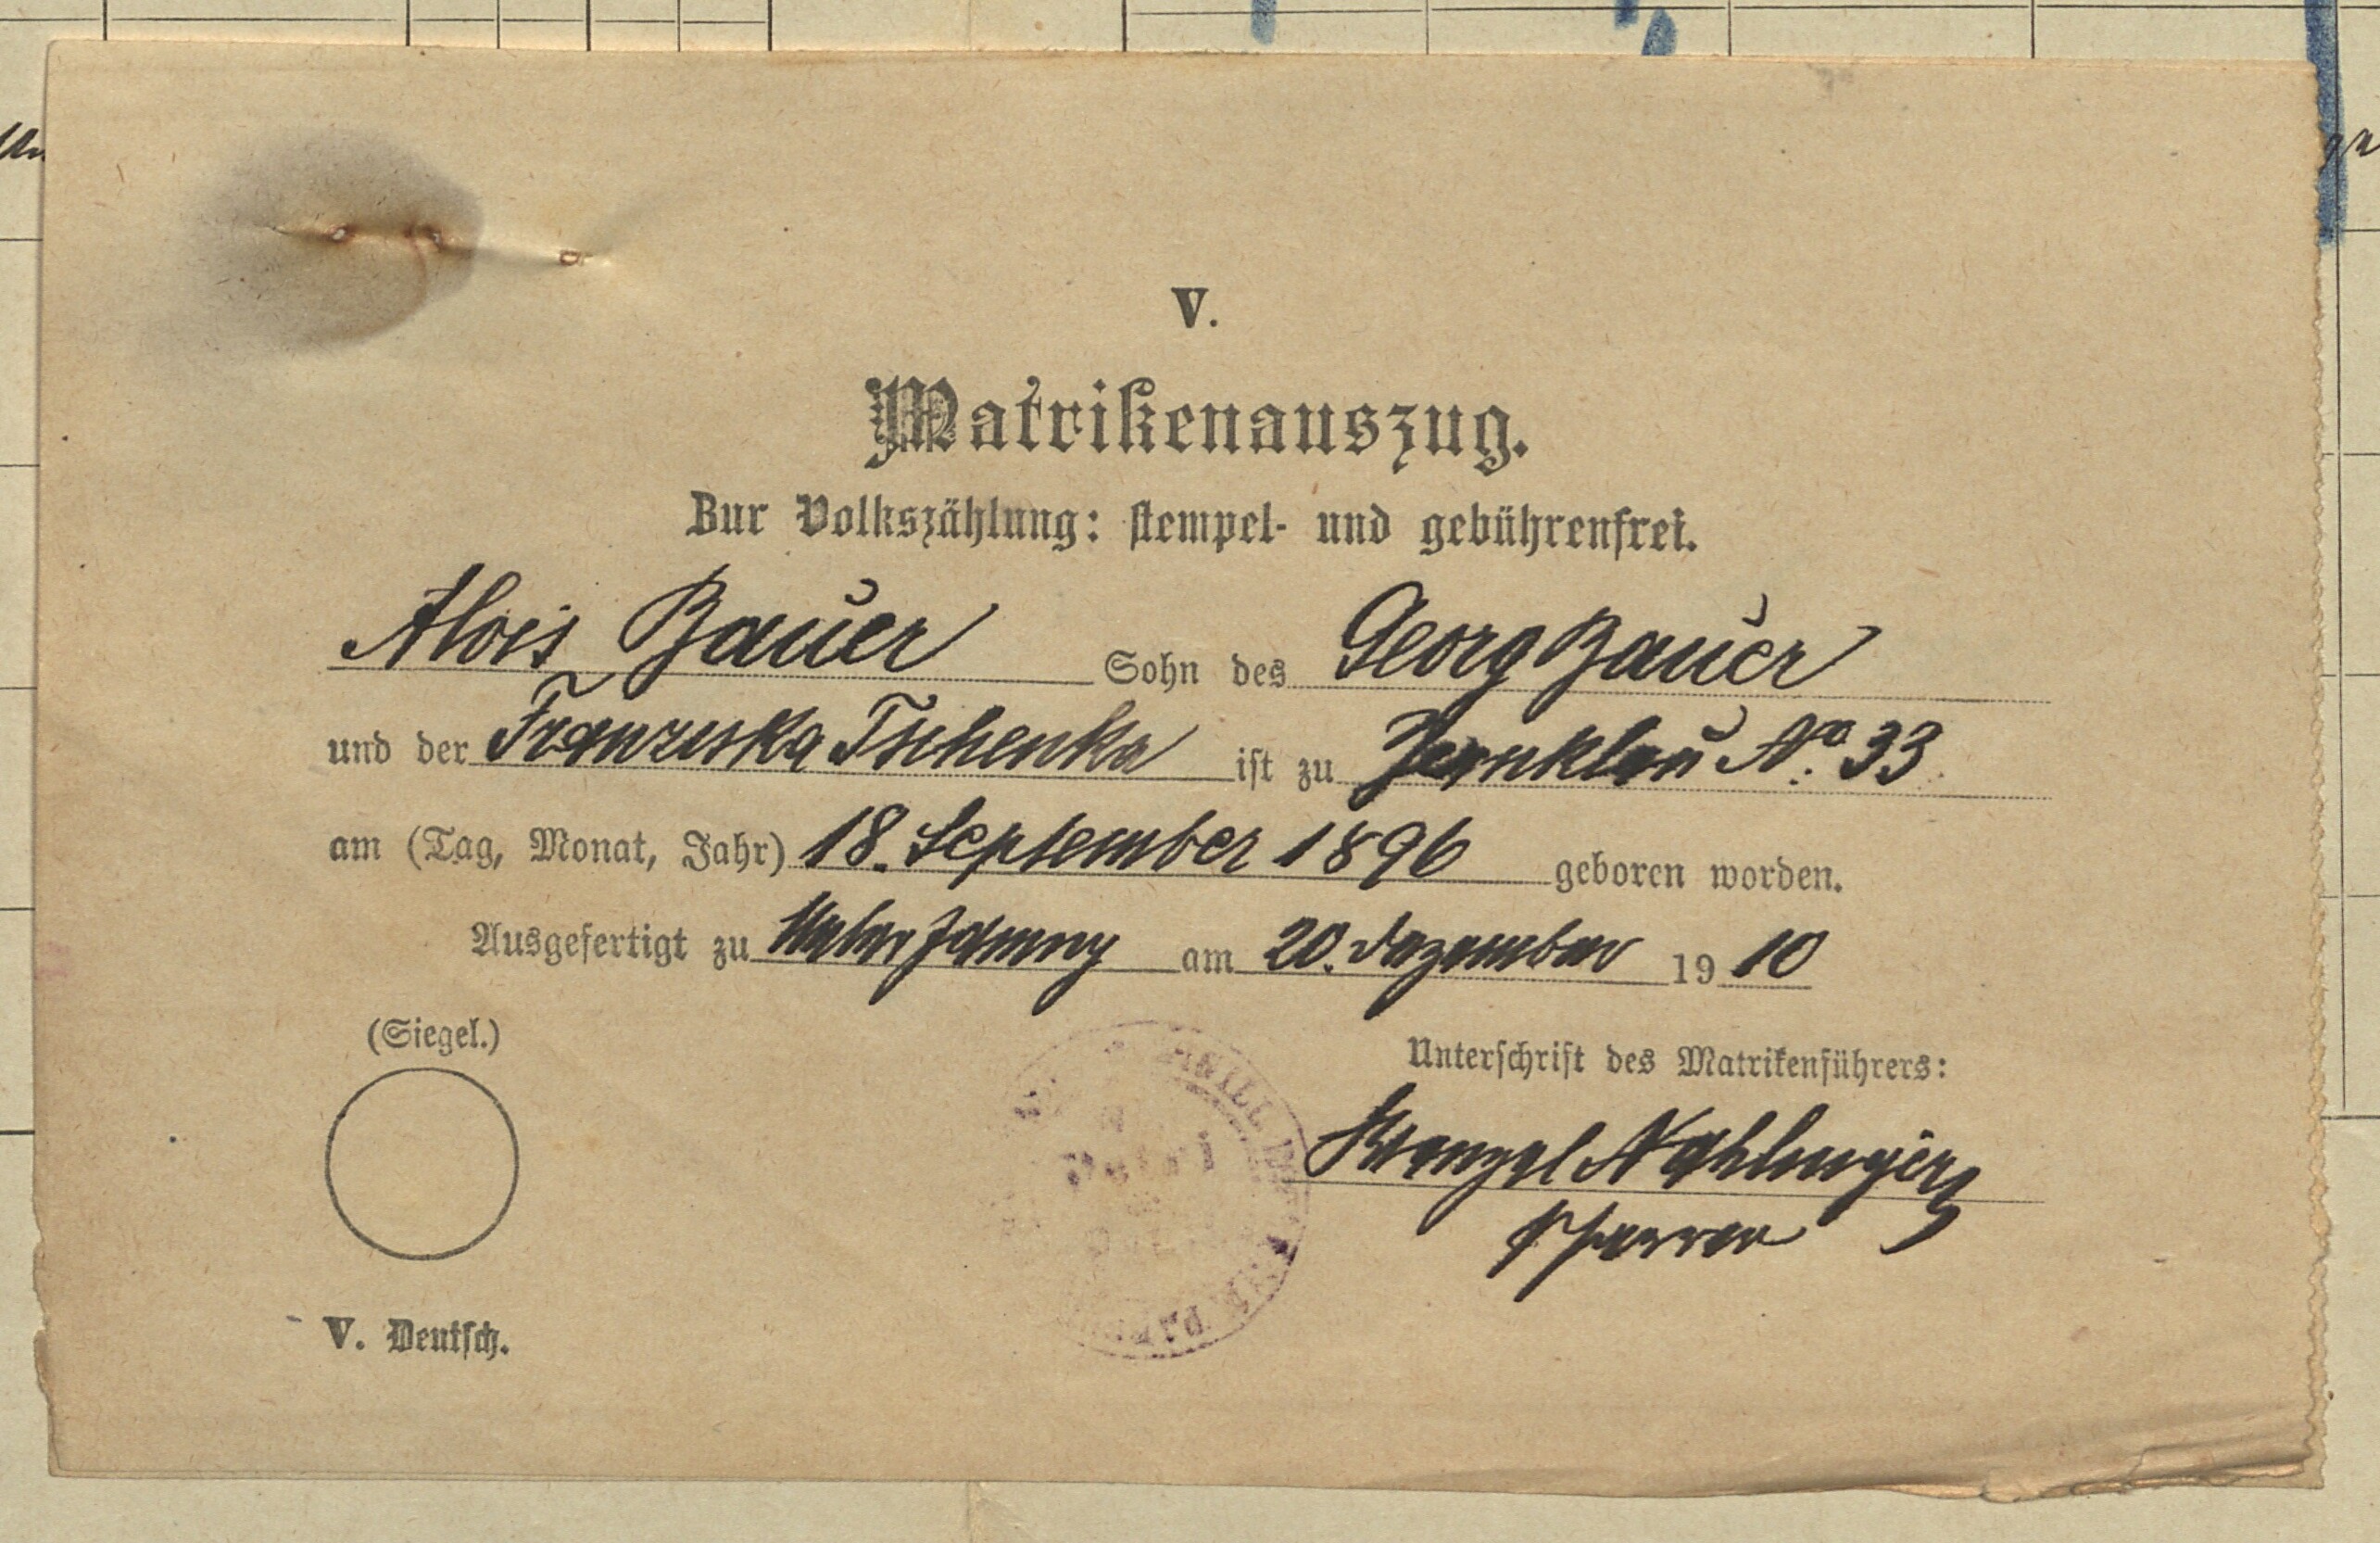 V.
Matrikenauszug.
Zur Volkszählung: stempel- und gebührenfrei.
Alois Bauer Sohn des Georg Bauer
und der Franziska Tschenka ist zu No. 33
am (Tag, Monat, Jahr) 18. September 1896 geboren worden.
Ausgefertigt zu am 20. Dezember 19 10
(Siegel.)
Unterschrift des Matrikenführers:
Wenzel
Pfarrer
V. Deutsch.